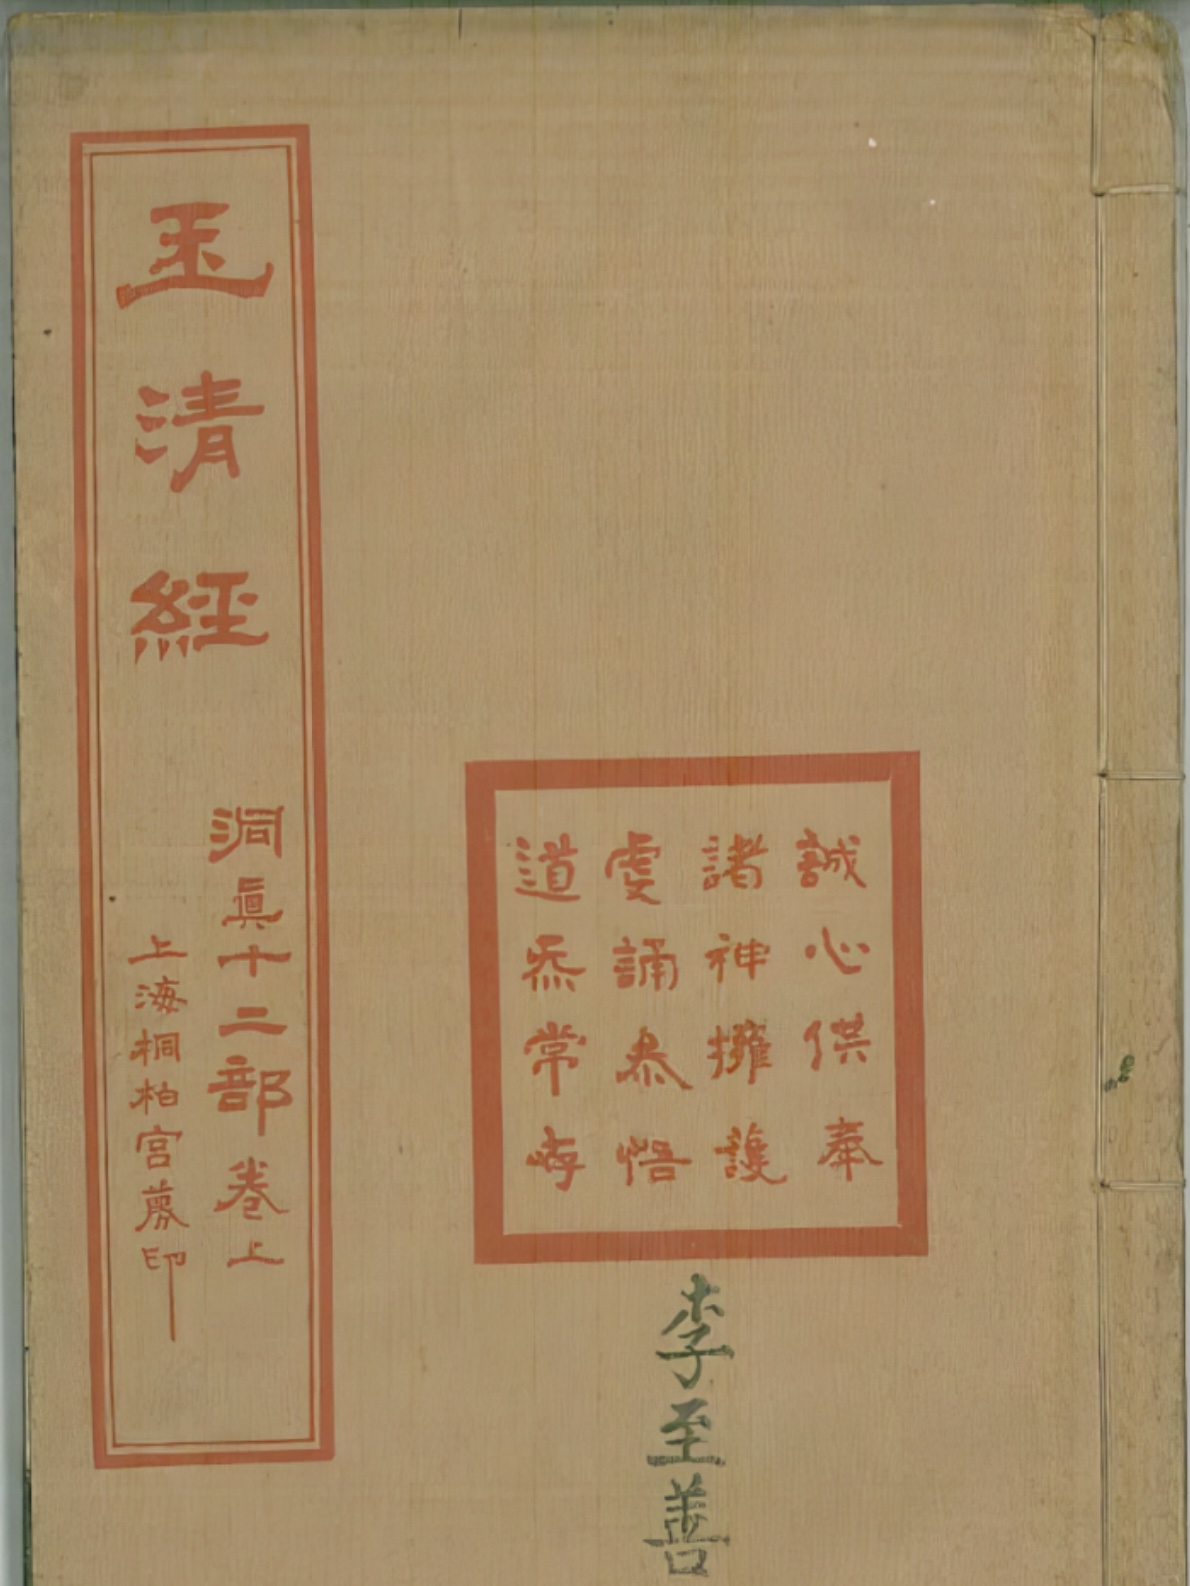 玉清經
洞眞十二部卷上
上海桐柏宮募印
誠心供奉
諸神擁護
虔誦恭悟
道炁常存
李至善